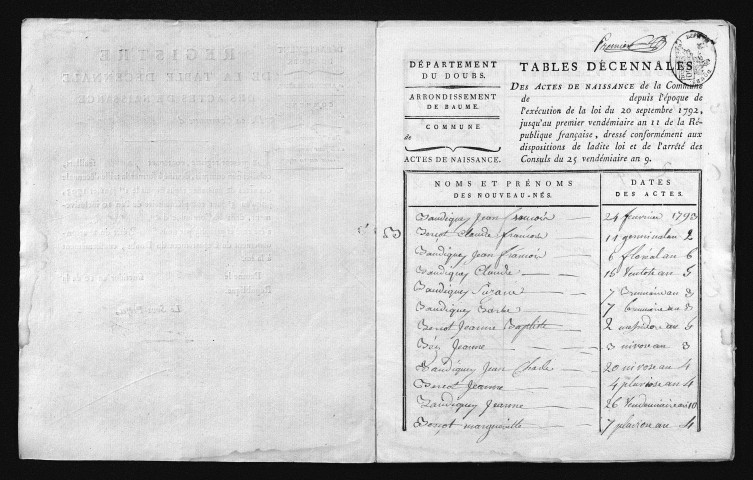 REGISTRE
DE LA TABLE DÉCENNALE
Premier
DÉPARTEMENT
DU DOUBS.
ARRONDISSEMENT
DE BAUME.
COMMUNE
de
ACTES DE NAISSANCE.
TABLES DÉCENNALES
DES ACTES DE NAISSANCE de la Commune
de depuis l'époque de
l'exécution de la loi du 20 septembre 1792,
jusqu'au premier vendémiaire an 11 de la Ré-
publique française, dressé conformément aux
dispositions de ladite loi et de l'arrêté des
Consuls du 25 vendémiaire an 9.
NOMS ET PRÉNOMS
DES NOUVEAU-NÉS.
DATES
DES ACTES.
B
Baudiquey Jean francois 24 fevrier 1793
Bersot Claude francois 11 germinal an 2
Baudiquey Jean francois 6 floréal an 6
Baudiquey Claude 18 Ventose an 5
Baudiquey Suzane 7 Brumaire an 8
Baudiquey Barbe 7 brumaire an 8
Bersot Jeanne Baptiste 2 messidor an 5
Jeanne 3 nivose an 3
Baudiquey Jean Charle 20 nivose an 4
Bersot Jeanne 4 pluviose an 4
Baudiquey Jeanne 26 Vendemiaire an 10
Bersot margueritte 7 pluviose an 4